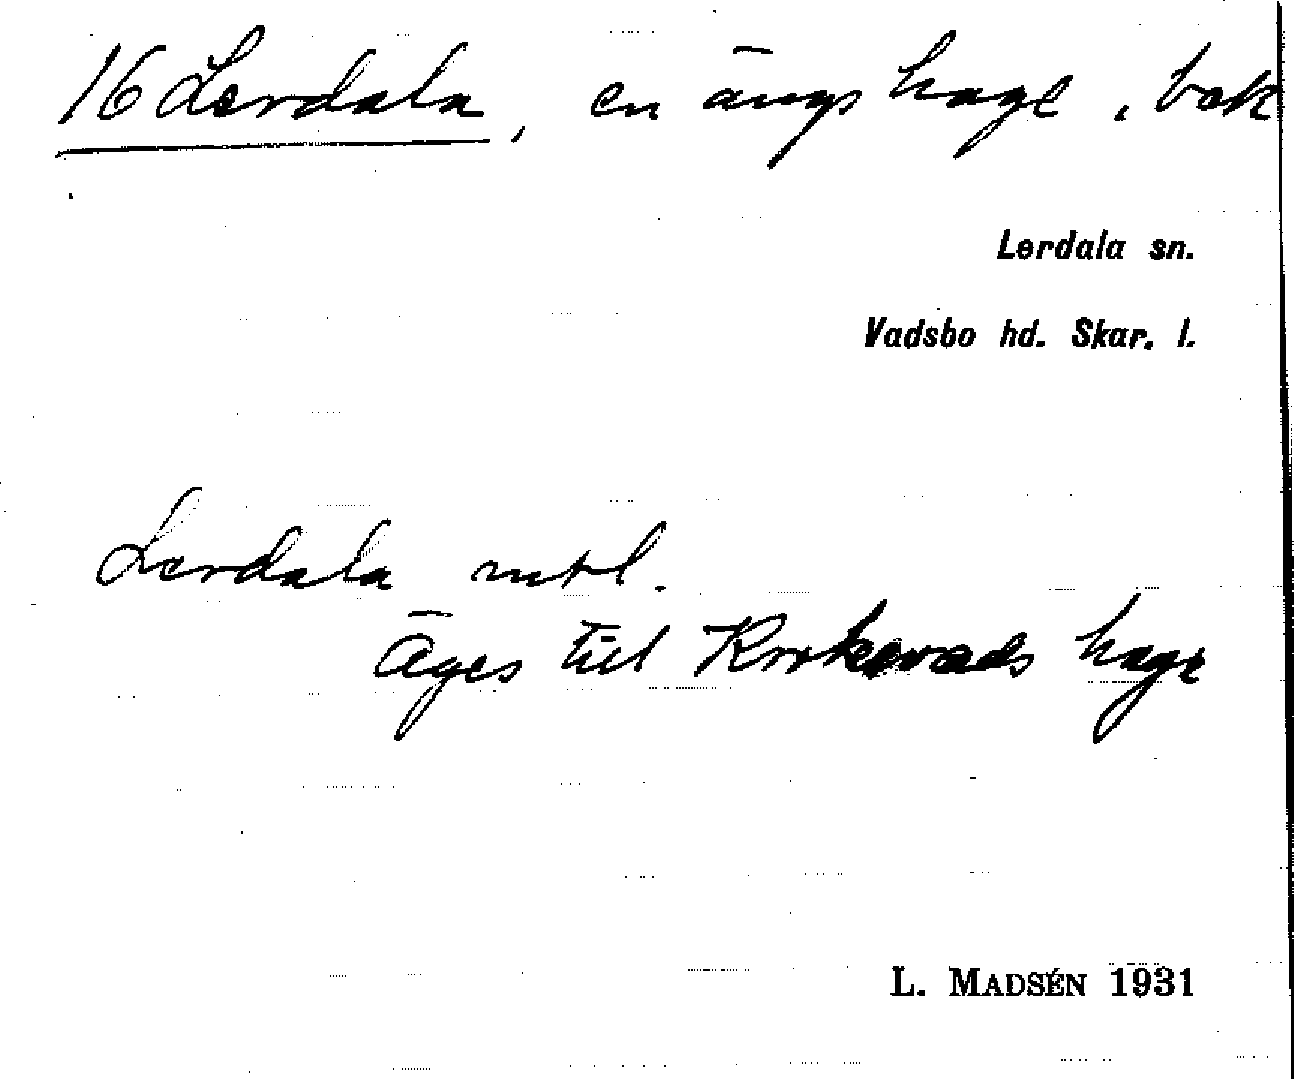 16 Lerdala, en ängshage, bok
Lerdala sn.
Vadsbo hd. Skar. l.
Lerdala mtl.
Äges till Krokavads hage
L. MADSÉN 1931